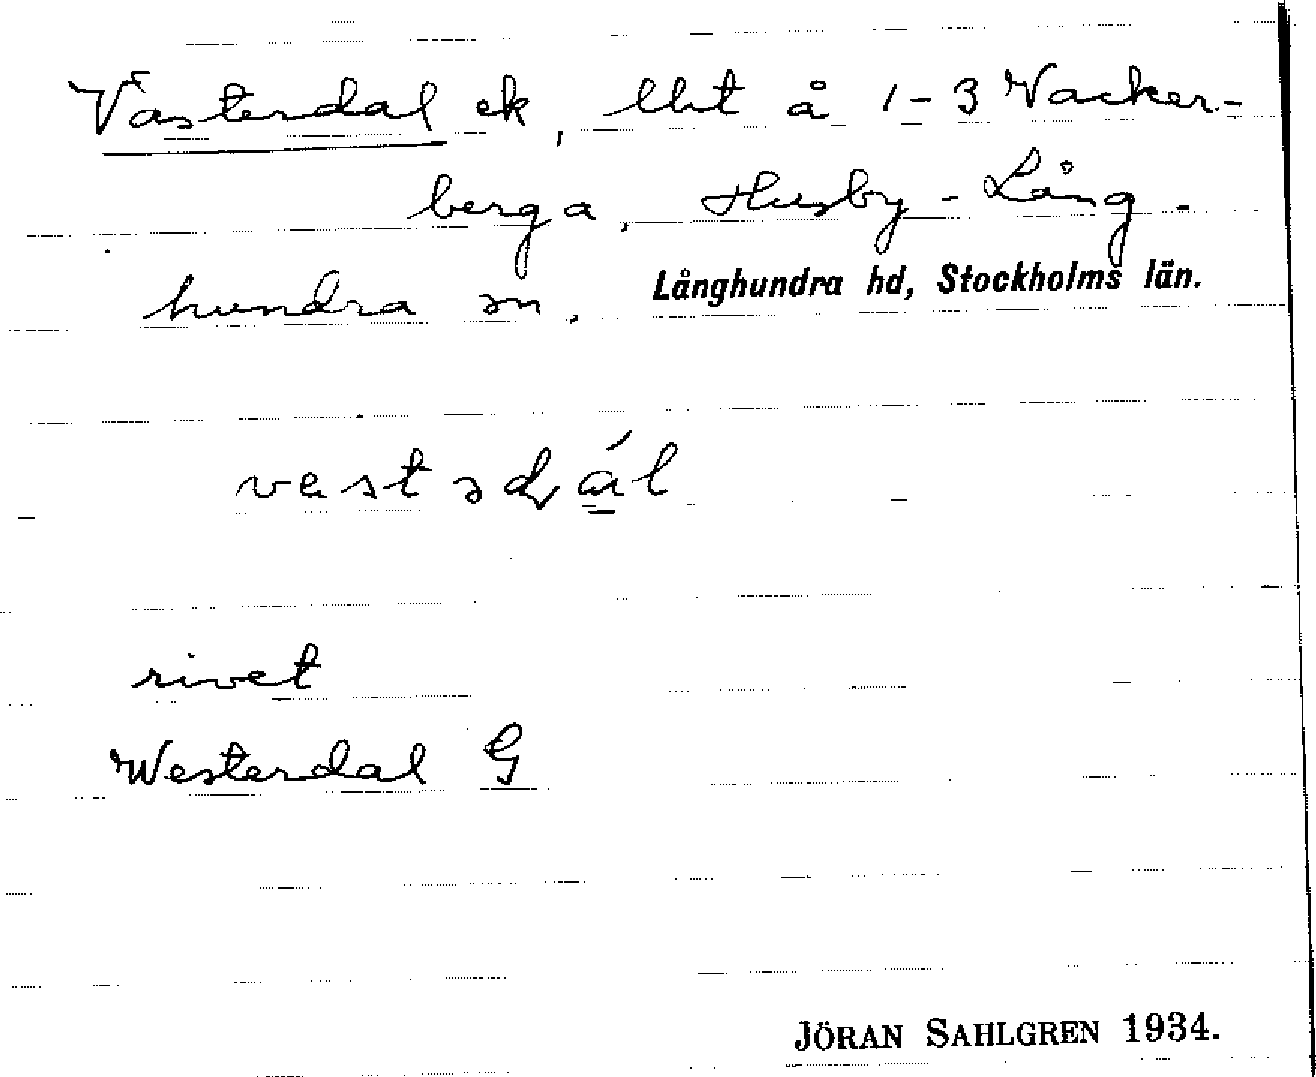 Västerdal ek, lht å 1-3 Wacker-
berga, Husby-Lång-
hundra sn. Långhundra hd, Stockholms län.
rivet
Westerdal G
JÖRAN SAHLGREN 1934.